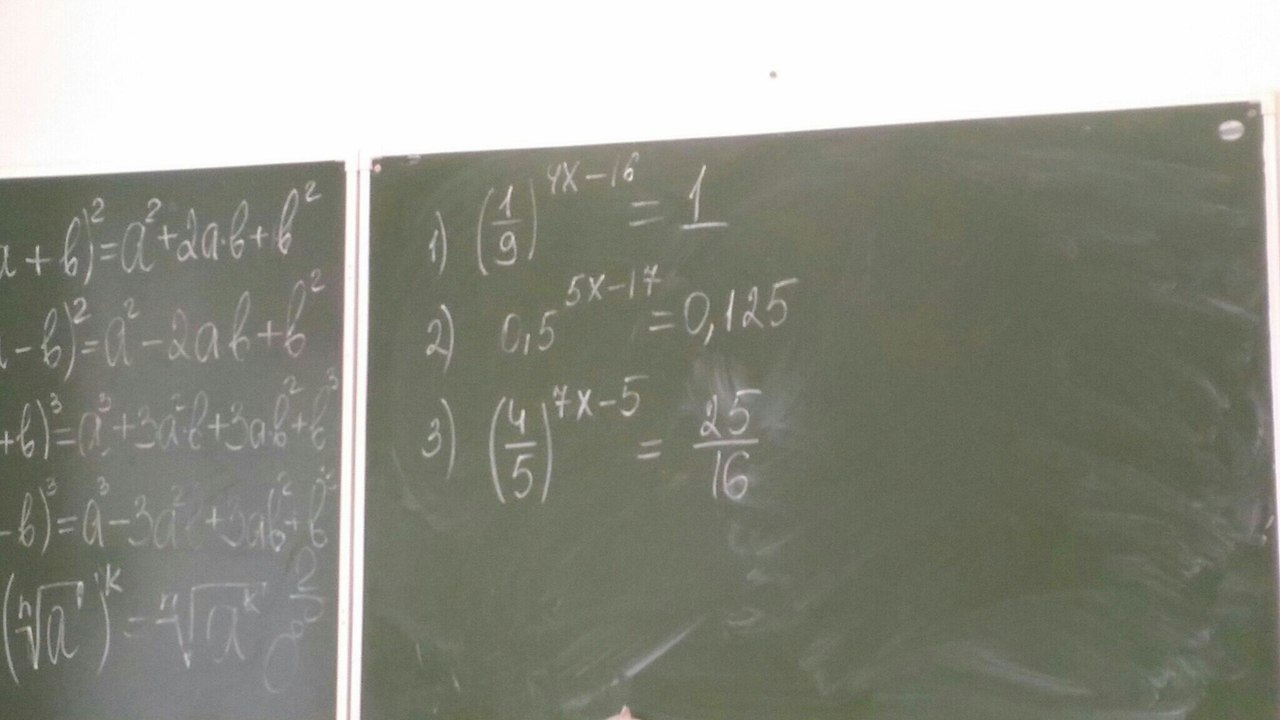 a + b)² = a² + 2a·b + b²
- b)² = a² - 2ab + b²
+ b)³ = a³ + 3a²b + 3ab² + b³
- b)³ = a³ - 3a²b + 3ab² + b³
(ⁿ√a)ᵏ = ⁿ√aᵏ
1) (1/9)^(4x-16) = 1
2) 0,5^(5x-17) = 0,125
3) (4/5)^(7x-5) = 25/16